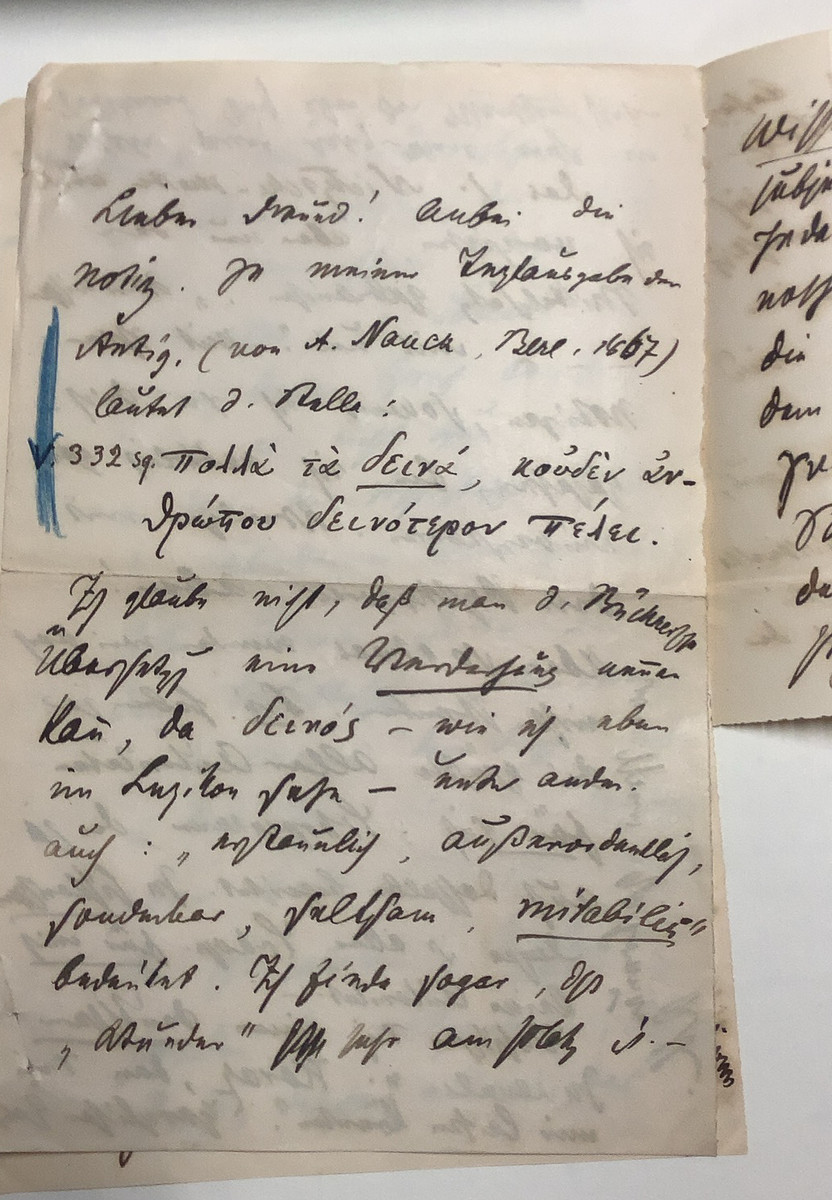 Lieber Freund! Anbei die
Notiz. In meiner Textausgabe der
Antig. (von A. Nauck, Berl. 1867)
lautet d. Stelle:
V. 332 sq. πολλὰ τὰ δεινά, κοὐδὲν ἀν-
θρώπου δεινότερον πέλει.
Ich glaube nicht, daß man d.
Übersetzg eine nennen
kan̄, da δεινός – wie ich eben
im Lexikon sehe – unter ander.
auch: „erstaun̄lich, außerordentlich,
sonderbar, seltsam, mirabilis“
bedeutet. Ich finde sogar, dß
„Wunder“ sehr am Platz is. –
wiss
subje
Jeda
noth
die
dem